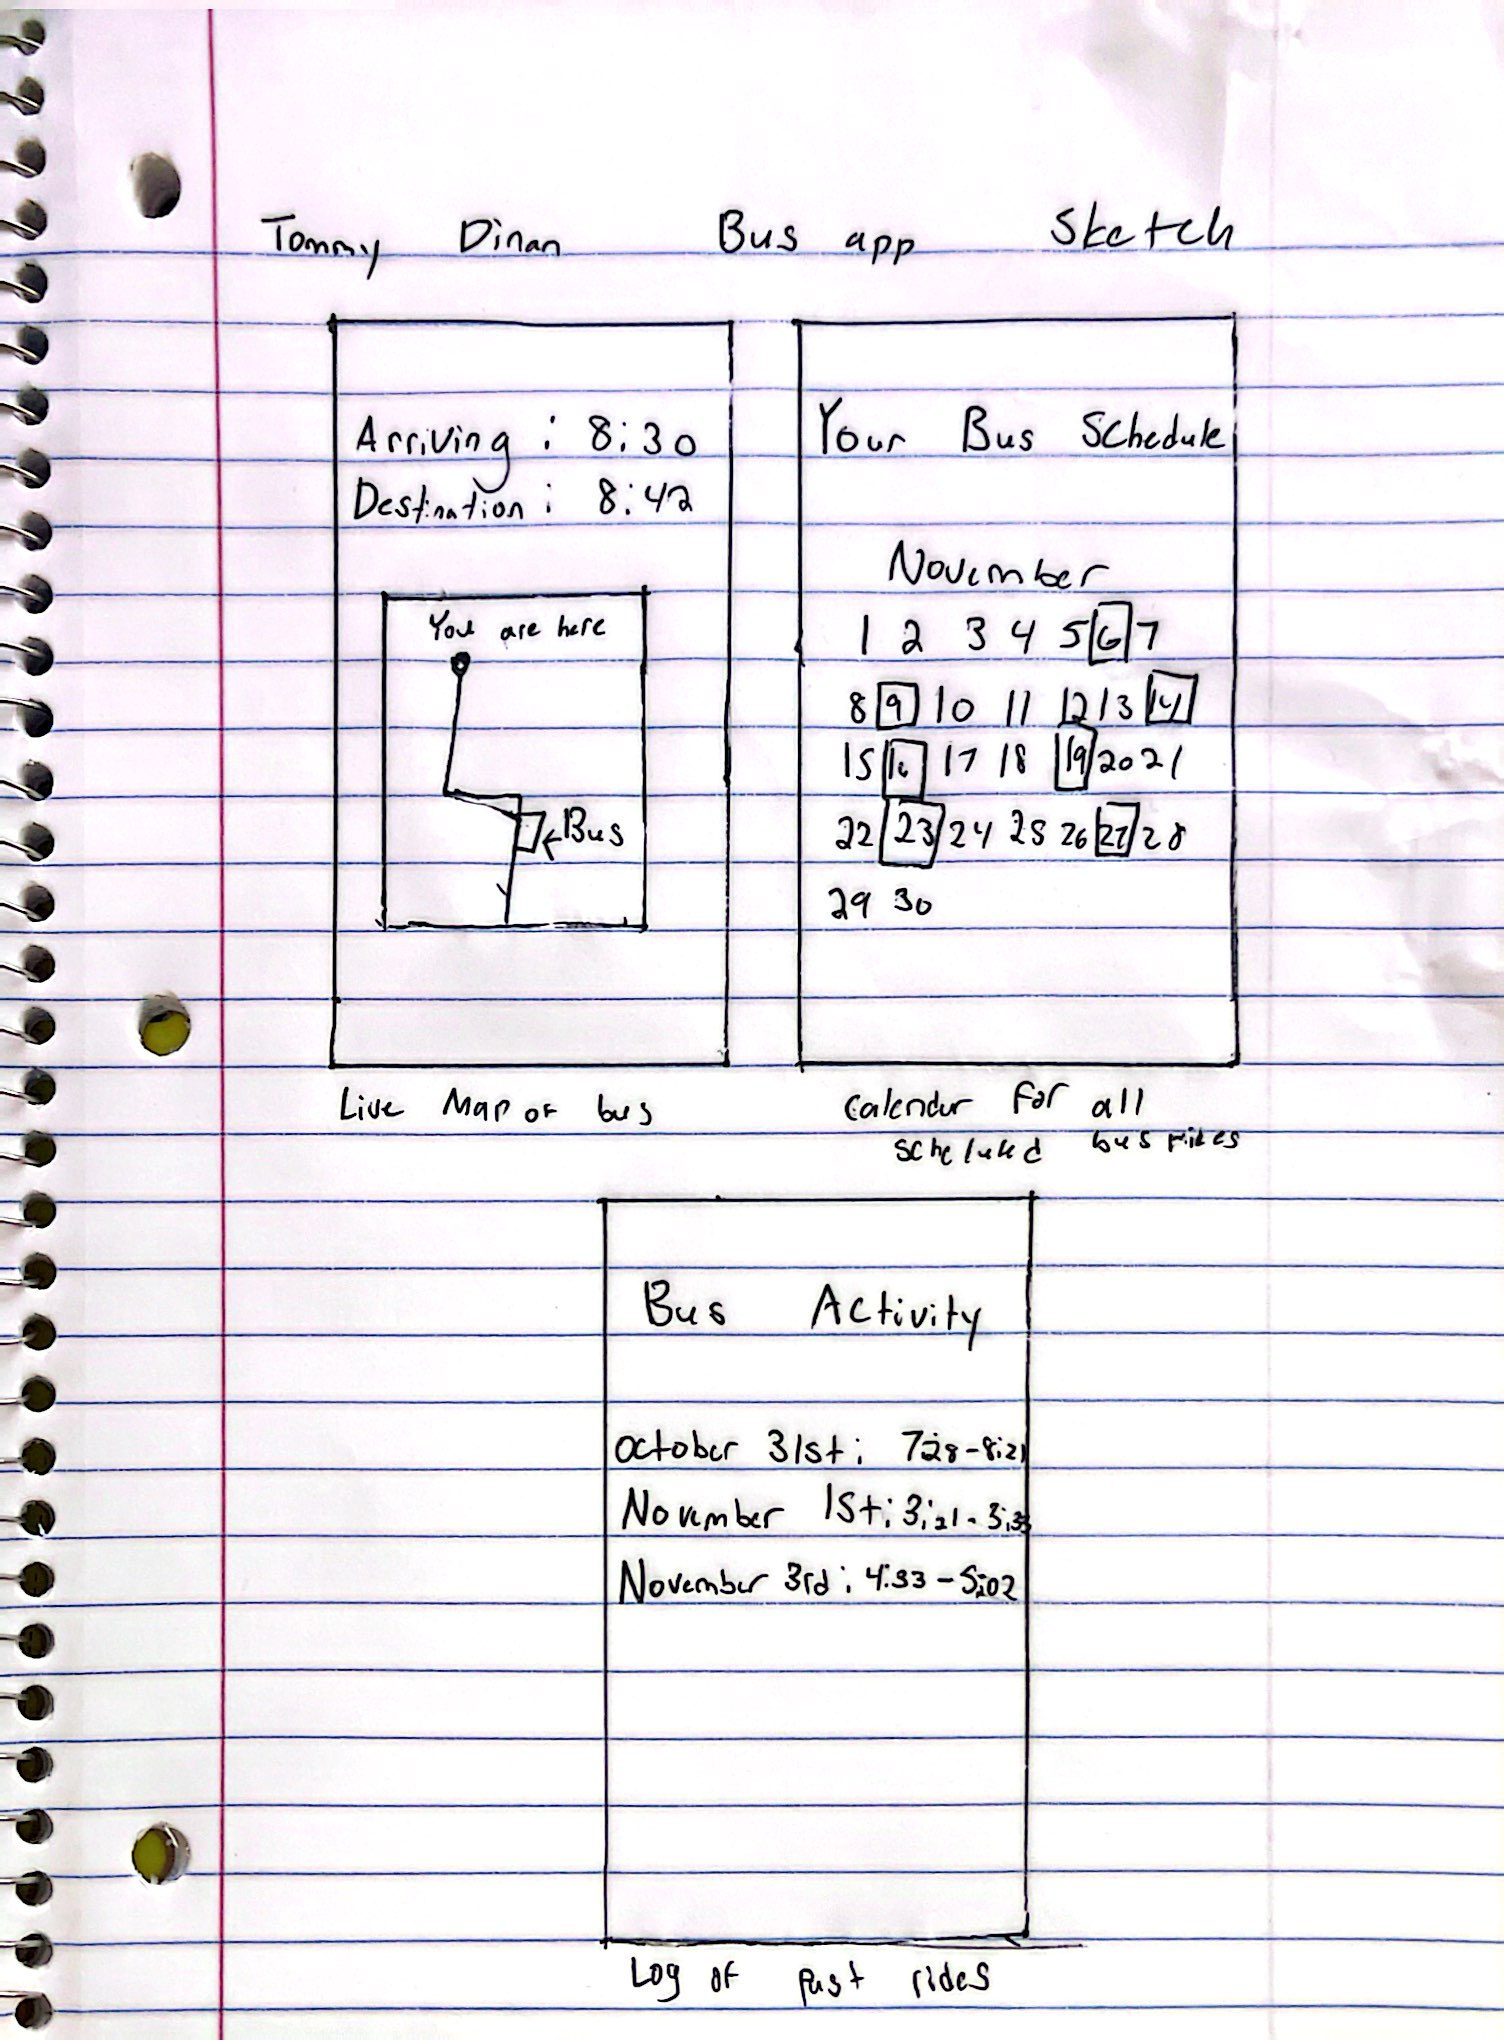 Tommy Dinan Bus app Sketch
Arriving : 8:30
Destination : 8:42
You are here
Bus
Live Map of bus
Your Bus Schedule
November
1 2 3 4 5 6 7
8 9 10 11 12 13 14
15 16 17 18 19 20 21
22 23 24 25 26 27 28
29 30
Calendar for all
scheluled bus rides
Bus Activity
October 31st: 7:28-8:21
November 1st: 3:21-3:33
November 3rd: 4:33-5:02
Log of past rides